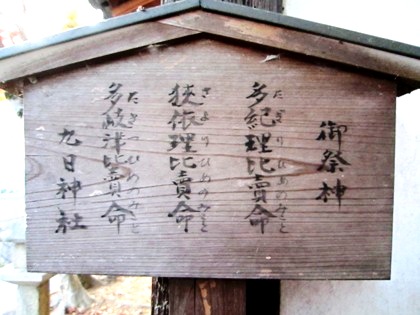 御祭神
多紀理比賣命
たぎりひめのみこと
狭依理比賣命
さよりひめのみこと
多岐津比賣命
たきつひめのみこと
九日神社